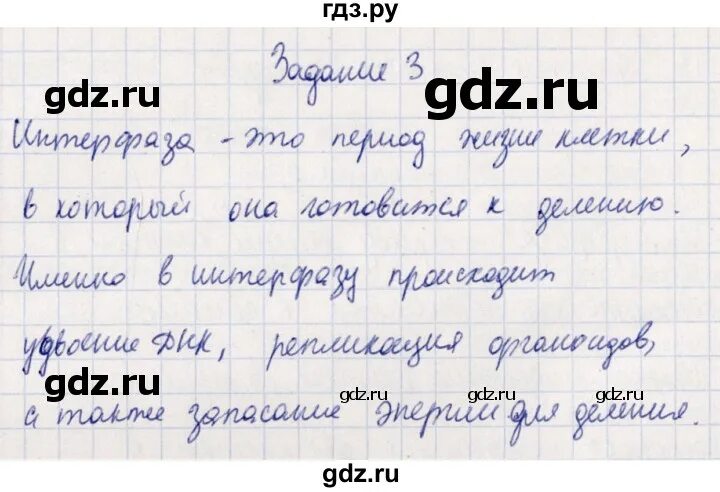 гдз.ру
Задание 3
gdz.ru
gdz.ru
Интерфаза - это период жизни клетки,
в который она готовится к делению.
Именно в интерфазу происходит
удвоение ДНК, репликация органоидов,
gdz.ru
gdz.ru
gdz.ru
а также запасание энергии для деления.
gdz.ru